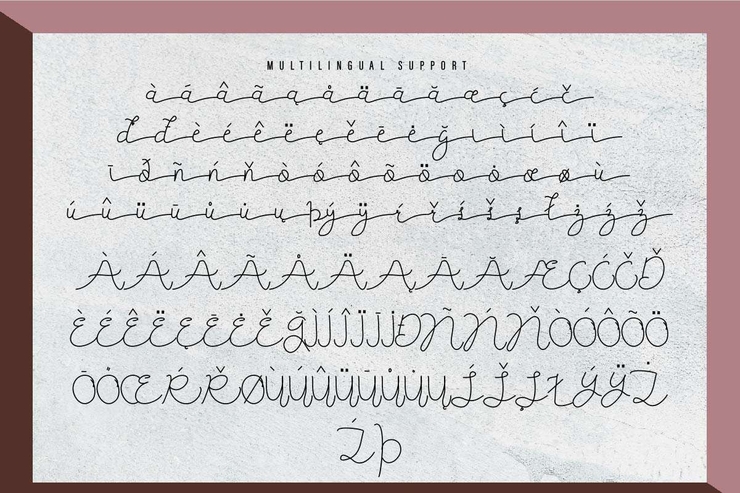 MULTILINGUAL SUPPORT
à á â ã ą å ä ā ă æ ç ć č
ď đ è é ê ë ę ě ē ė ğ ı ì í î ï
ī ð ñ ń ň ò ó ô õ ö œ ø ù
ú û ü ū ů ų þ ý ÿ ŕ ř ś š ş ł ż ź ž
À Á Â Ã Å Ä Ą Ā Ă Æ Ç Ć Č Ď
È É Ê Ë Ę Ē Ė Ě Ğ Ì Í Î Ï Ī Đ Ñ Ń Ň Ò Ó Ô Õ Ö
Ō Œ Ŕ Ř Ø Ù Ú Û Ü Ū Ů Ų Ś Š Ş Ł Ý Ÿ Ż
Ź Þ